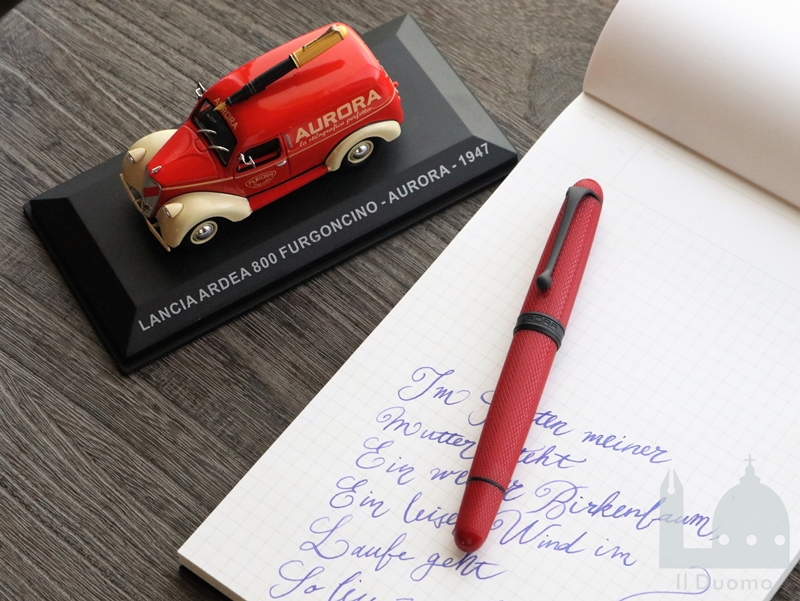 AURORA
AURORA
la stilografica perfetta
AURORA
LANCIA ARDEA 800 FURGONCINO - AURORA - 1947
Im meiner
Mutter
Ein
Birkenbaum,
Ein Wind im
Laufe geht
So
Il Duomo